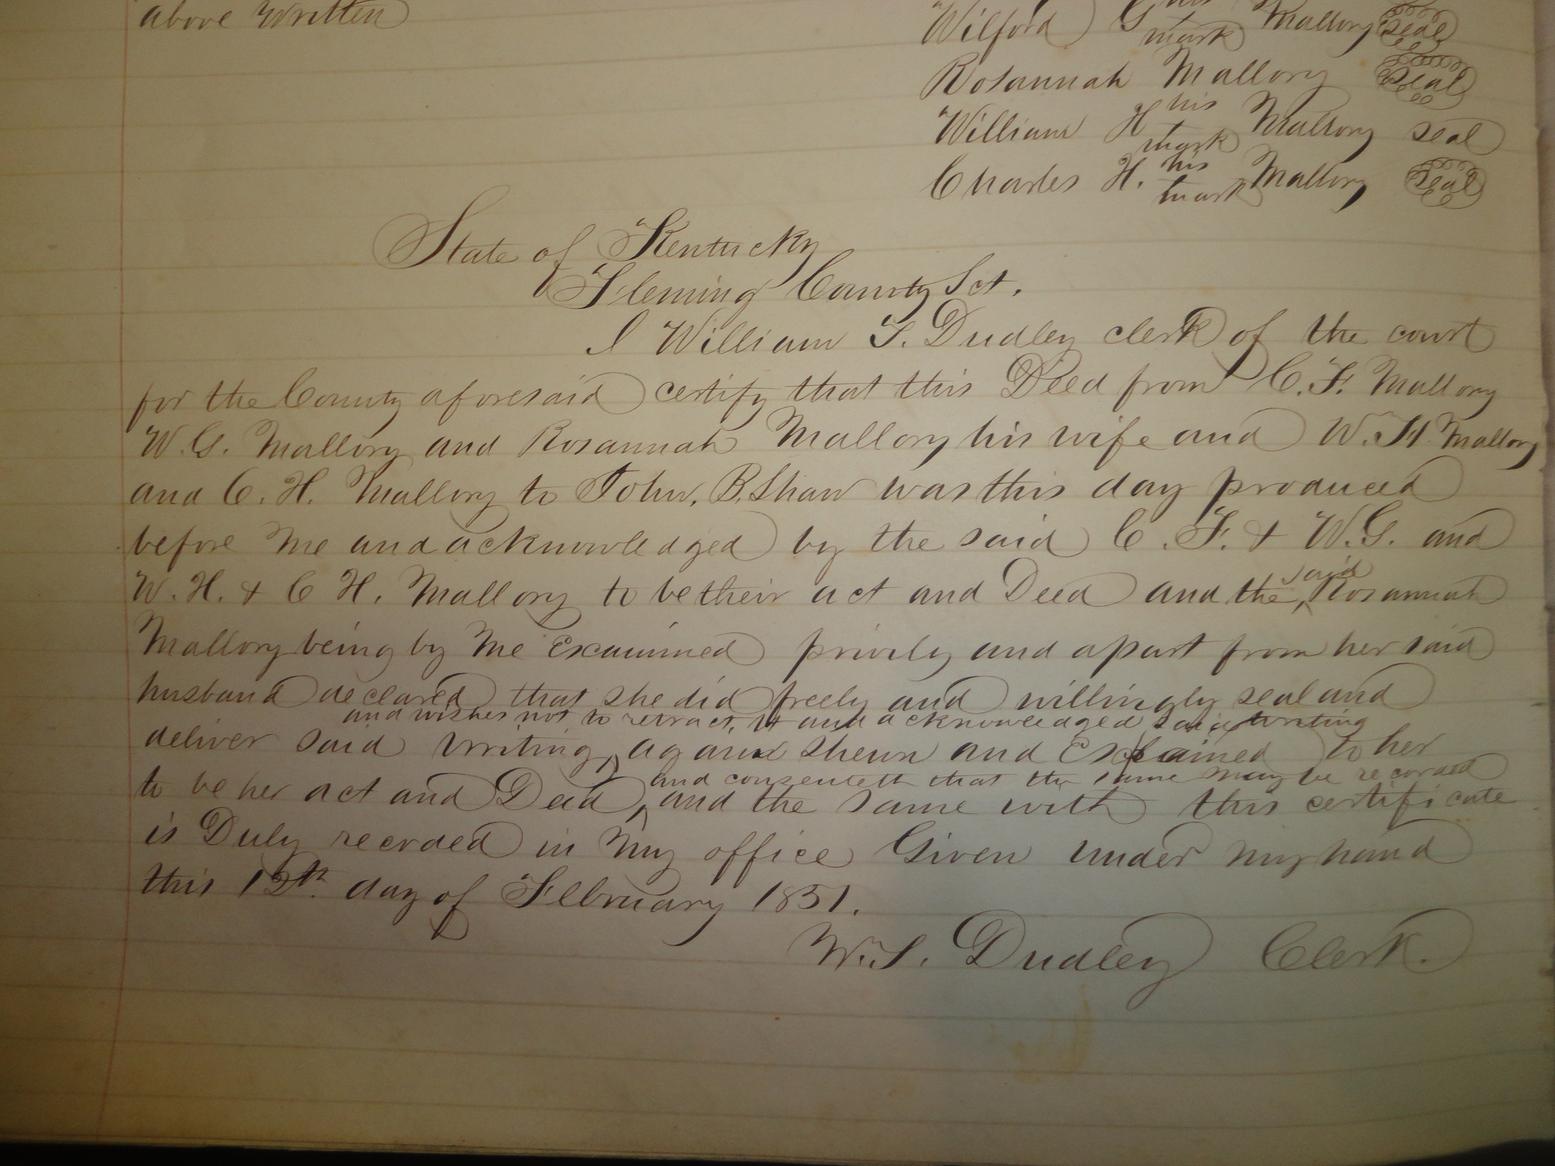 above Written
Wilford G his mark Mallory seal
Rosannah Mallory seal
William H his mark Mallory seal
Charles H. his mark Mallory seal
State of Kentucky
Fleming County Sct.
I William S. Dudley clerk of the court
for the County aforesaid certify that this Deed from C. F. Mallory
W. G. Mallory and Rosannah Mallory his wife and W. H. Mallory
and C. H. Mallory to John. B. Shaw was this day produced
before me and acknowledged by the said C. F. & W. G. and
said
W. H. & C H. Mallory to be their act and Deed and the Rosannah
Mallory being by me Examined privily and apart from her said
husband declared that she did freely and willingly seal and
and wishes not to retract it and acknowledged said writing
deliver said writing, again shewn and Explained to her
and consenteth that the same may be recorded
to be her act and Deed, and the same with this certificate
is Duly recorded in my office Given under my hand
this 12th. day of February 1851.
W. S. Dudley Clerk.